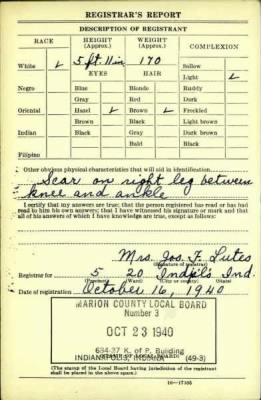 REGISTRAR'S REPORT
DESCRIPTION OF REGISTRANT
RACE HEIGHT (Approx.) WEIGHT (Approx.) COMPLEXION
White ✓ 5 ft. 11 in 170 Sallow
EYES HAIR Light ✓
Negro Blue Blonde Ruddy
Gray Red Dark
Oriental Hazel ✓ Brown ✓ Freckled
Brown Black Light brown
Indian Black Gray Dark brown
Bald Black
Filipino
Other obvious physical characteristics that will aid in identification
Scar on right leg between
knee and ankle
I certify that my answers are true; that the person registered has read or has had
read to him his own answers; that I have witnessed his signature or mark and that
all of his answers of which I have knowledge are true, except as follows:
Mrs. Jos. F. Lutes
(Signature of registrar)
Registrar for 5 20 Indpls Ind.
(City or county) (State)
Date of registration October 16, 1940
MARION COUNTY LOCAL BOARD
Number 3
OCT 23 1940
634-37 K. of P. Building
INDIANAPOLIS, INDIANA (49-3)
(STAMP OF LOCAL BOARD)
(The stamp of the Local Board having jurisdiction of the registrant
shall be placed in the above space.)
16—17105